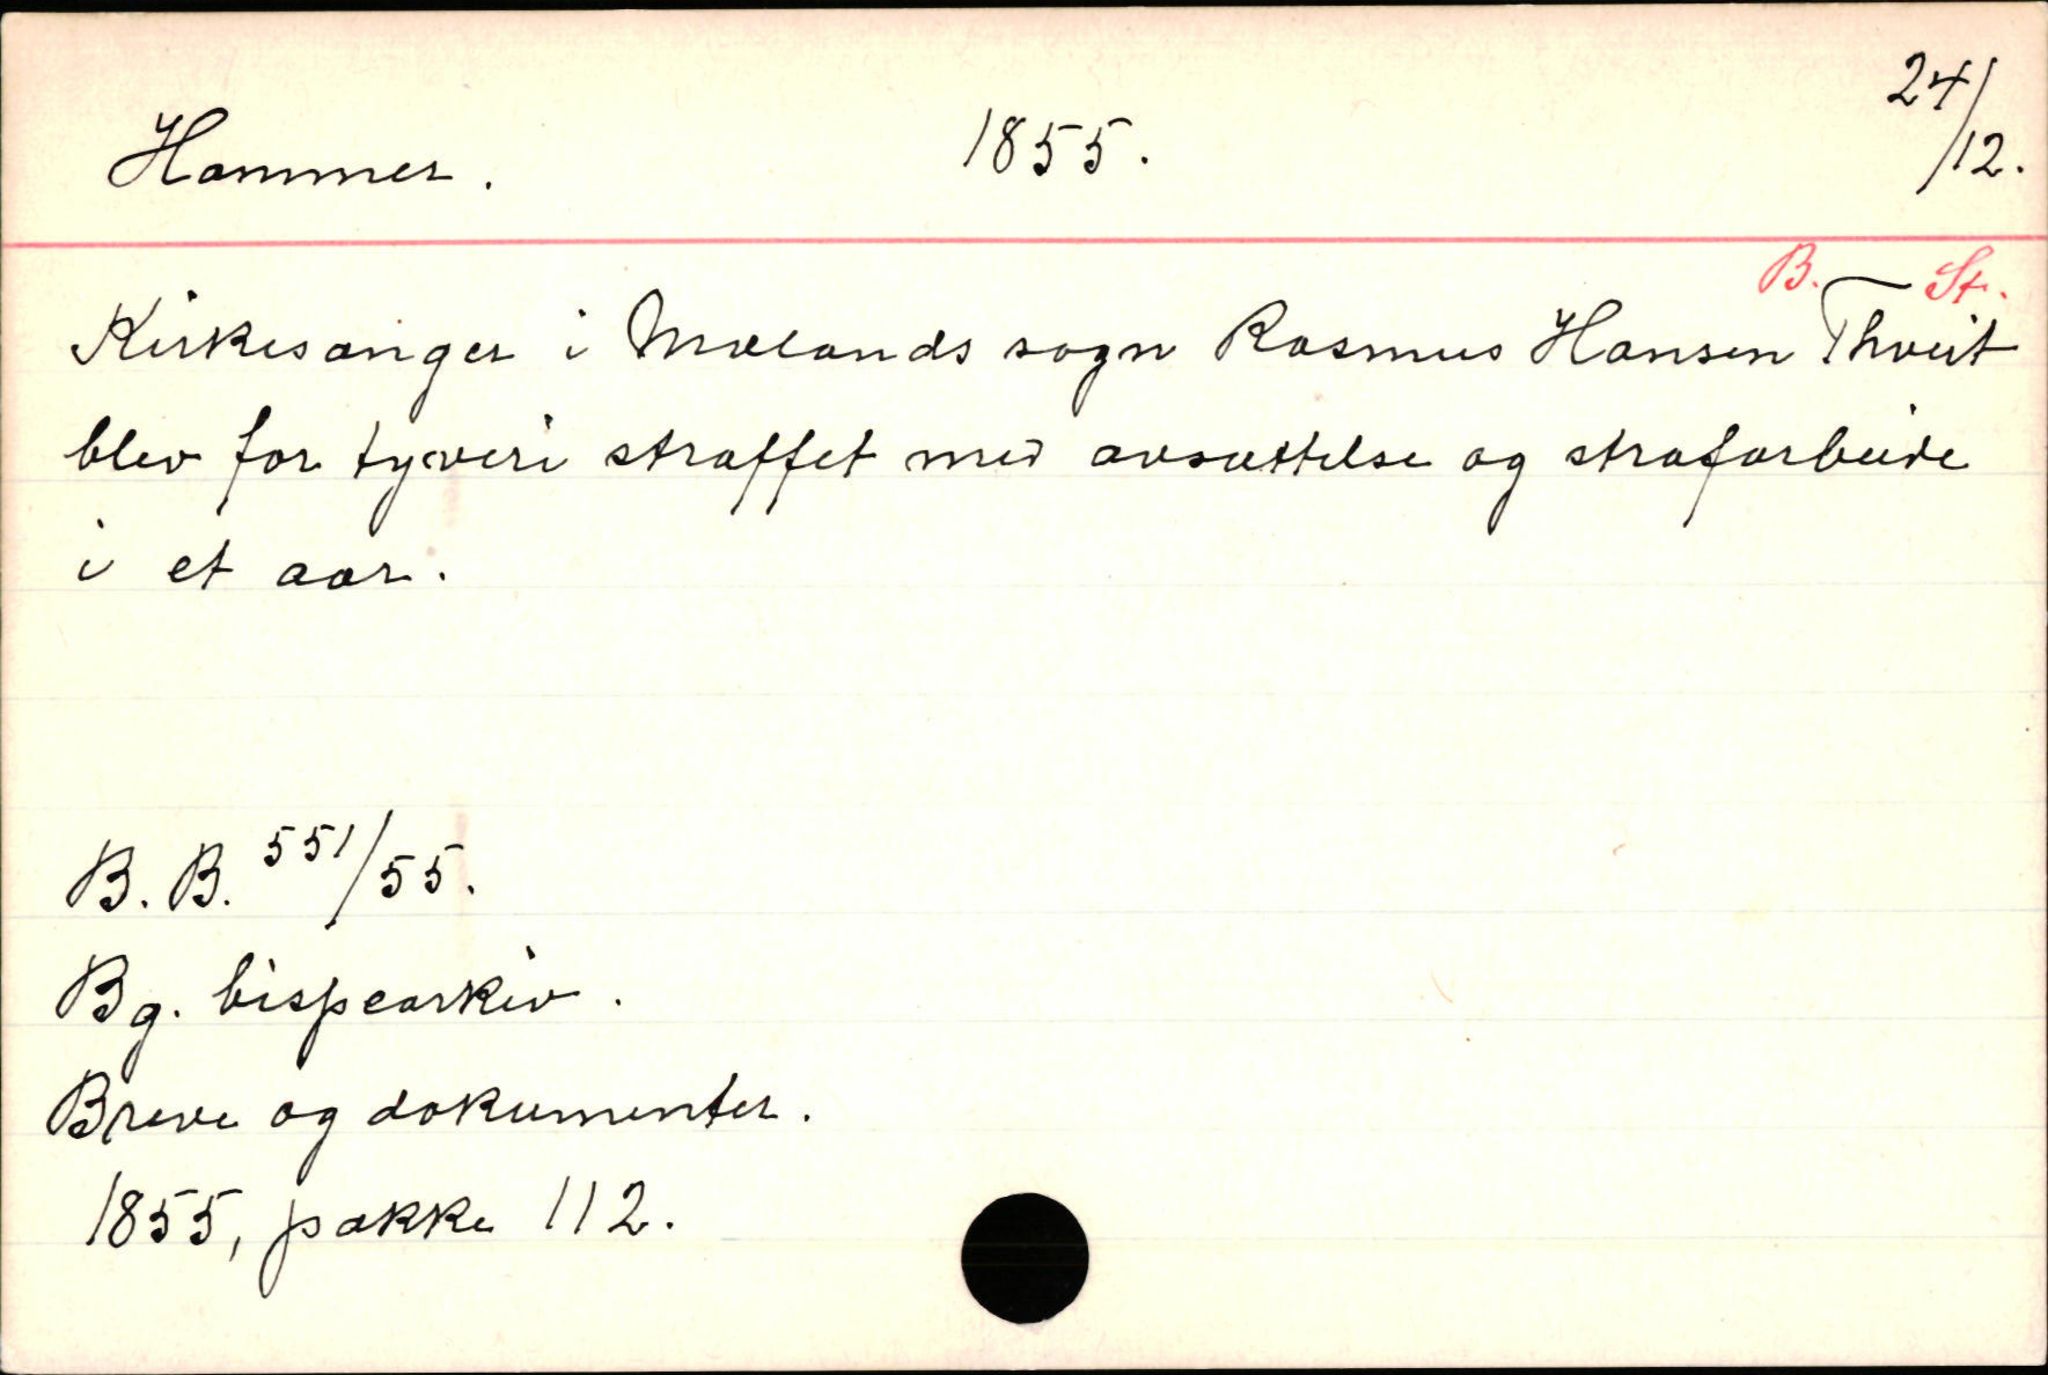 Hammer. 1855. 24/12.
B. St.
Kirkesanger i Mælands sogn Rasmus Hansen Thveit
blev for tyveri straffet med avsættelse og strafarbeide
i et aar.
B. B. 551/55.
Bg. bispearkiv.
Breve og dokumenter.
1855, pakke 112.